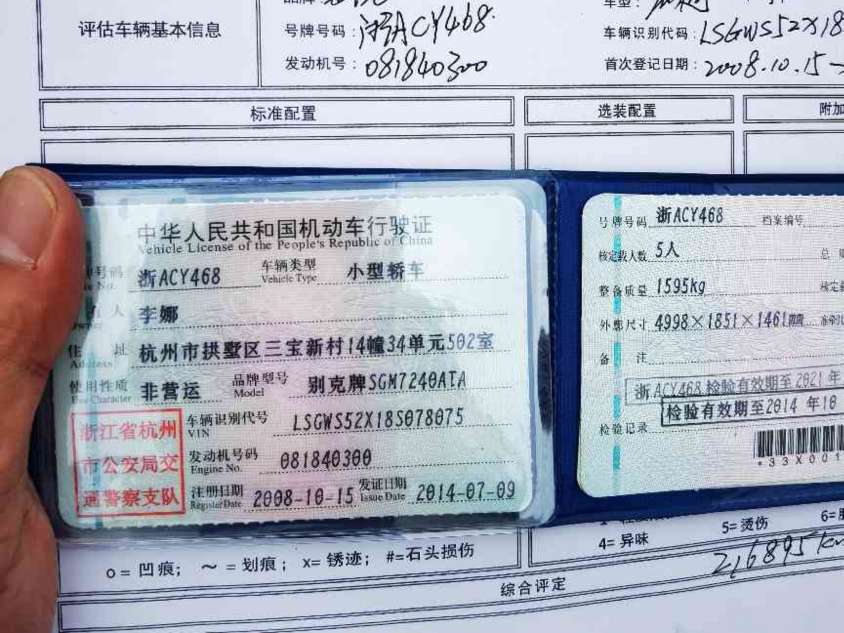 评估车辆基本信息
号牌号码：浙ACY468
车型：
发动机号：081840300
车辆识别代码：LSGWS52X18
首次登记日期：2008.10.15
标准配置
选装配置
附加
中华人民共和国机动车行驶证
Vehicle License of the People's Republic of China
号码 浙ACY468 车辆类型 Vehicle Type 小型轿车
人 李娜
Owner
住 址 杭州市拱墅区三宝新村14幢34单元502室
Address
使用性质 非营运 品牌型号 Model 别克牌SGM7240ATA
Use Character
浙江省杭州
市公安局交
通警察支队
车辆识别代号 VIN LSGWS52X18S078075
发动机号码 Engine No. 081840300
注册日期 Register Date 2008-10-15 发证日期 Issue Date 2014-07-09
号牌号码 浙ACY468 档案编号
核定载人数 5人 总
整备质量 1595kg 核定载
外廓尺寸 4998×1851×1461
备 注
浙ACY468 检验有效期至2021 年
检验有效期至2014 年 10
检验记录
*33X001
4= 异味
5= 烫伤
6=
o= 凹痕； ～= 划痕； x= 锈迹； #=石头损伤
216895km
综合评定